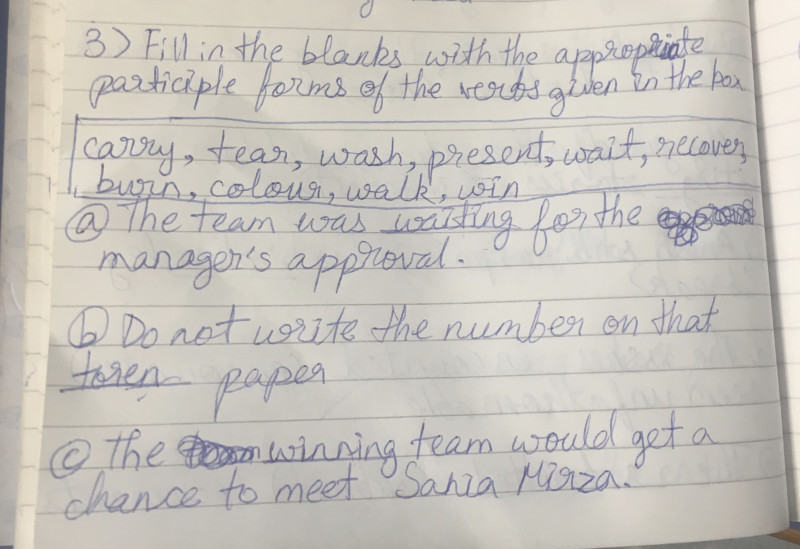 3) Fill in the blanks with the appropriate
participle forms of the verbs given in the box
carry, tear, wash, present, wait, recover,
burn, colour, walk, win
(a) The team was waiting for the
manager's approval.
(b) Do not write the number on that
toren paper
(c) The winning team would get a
chance to meet Sania Mirza.